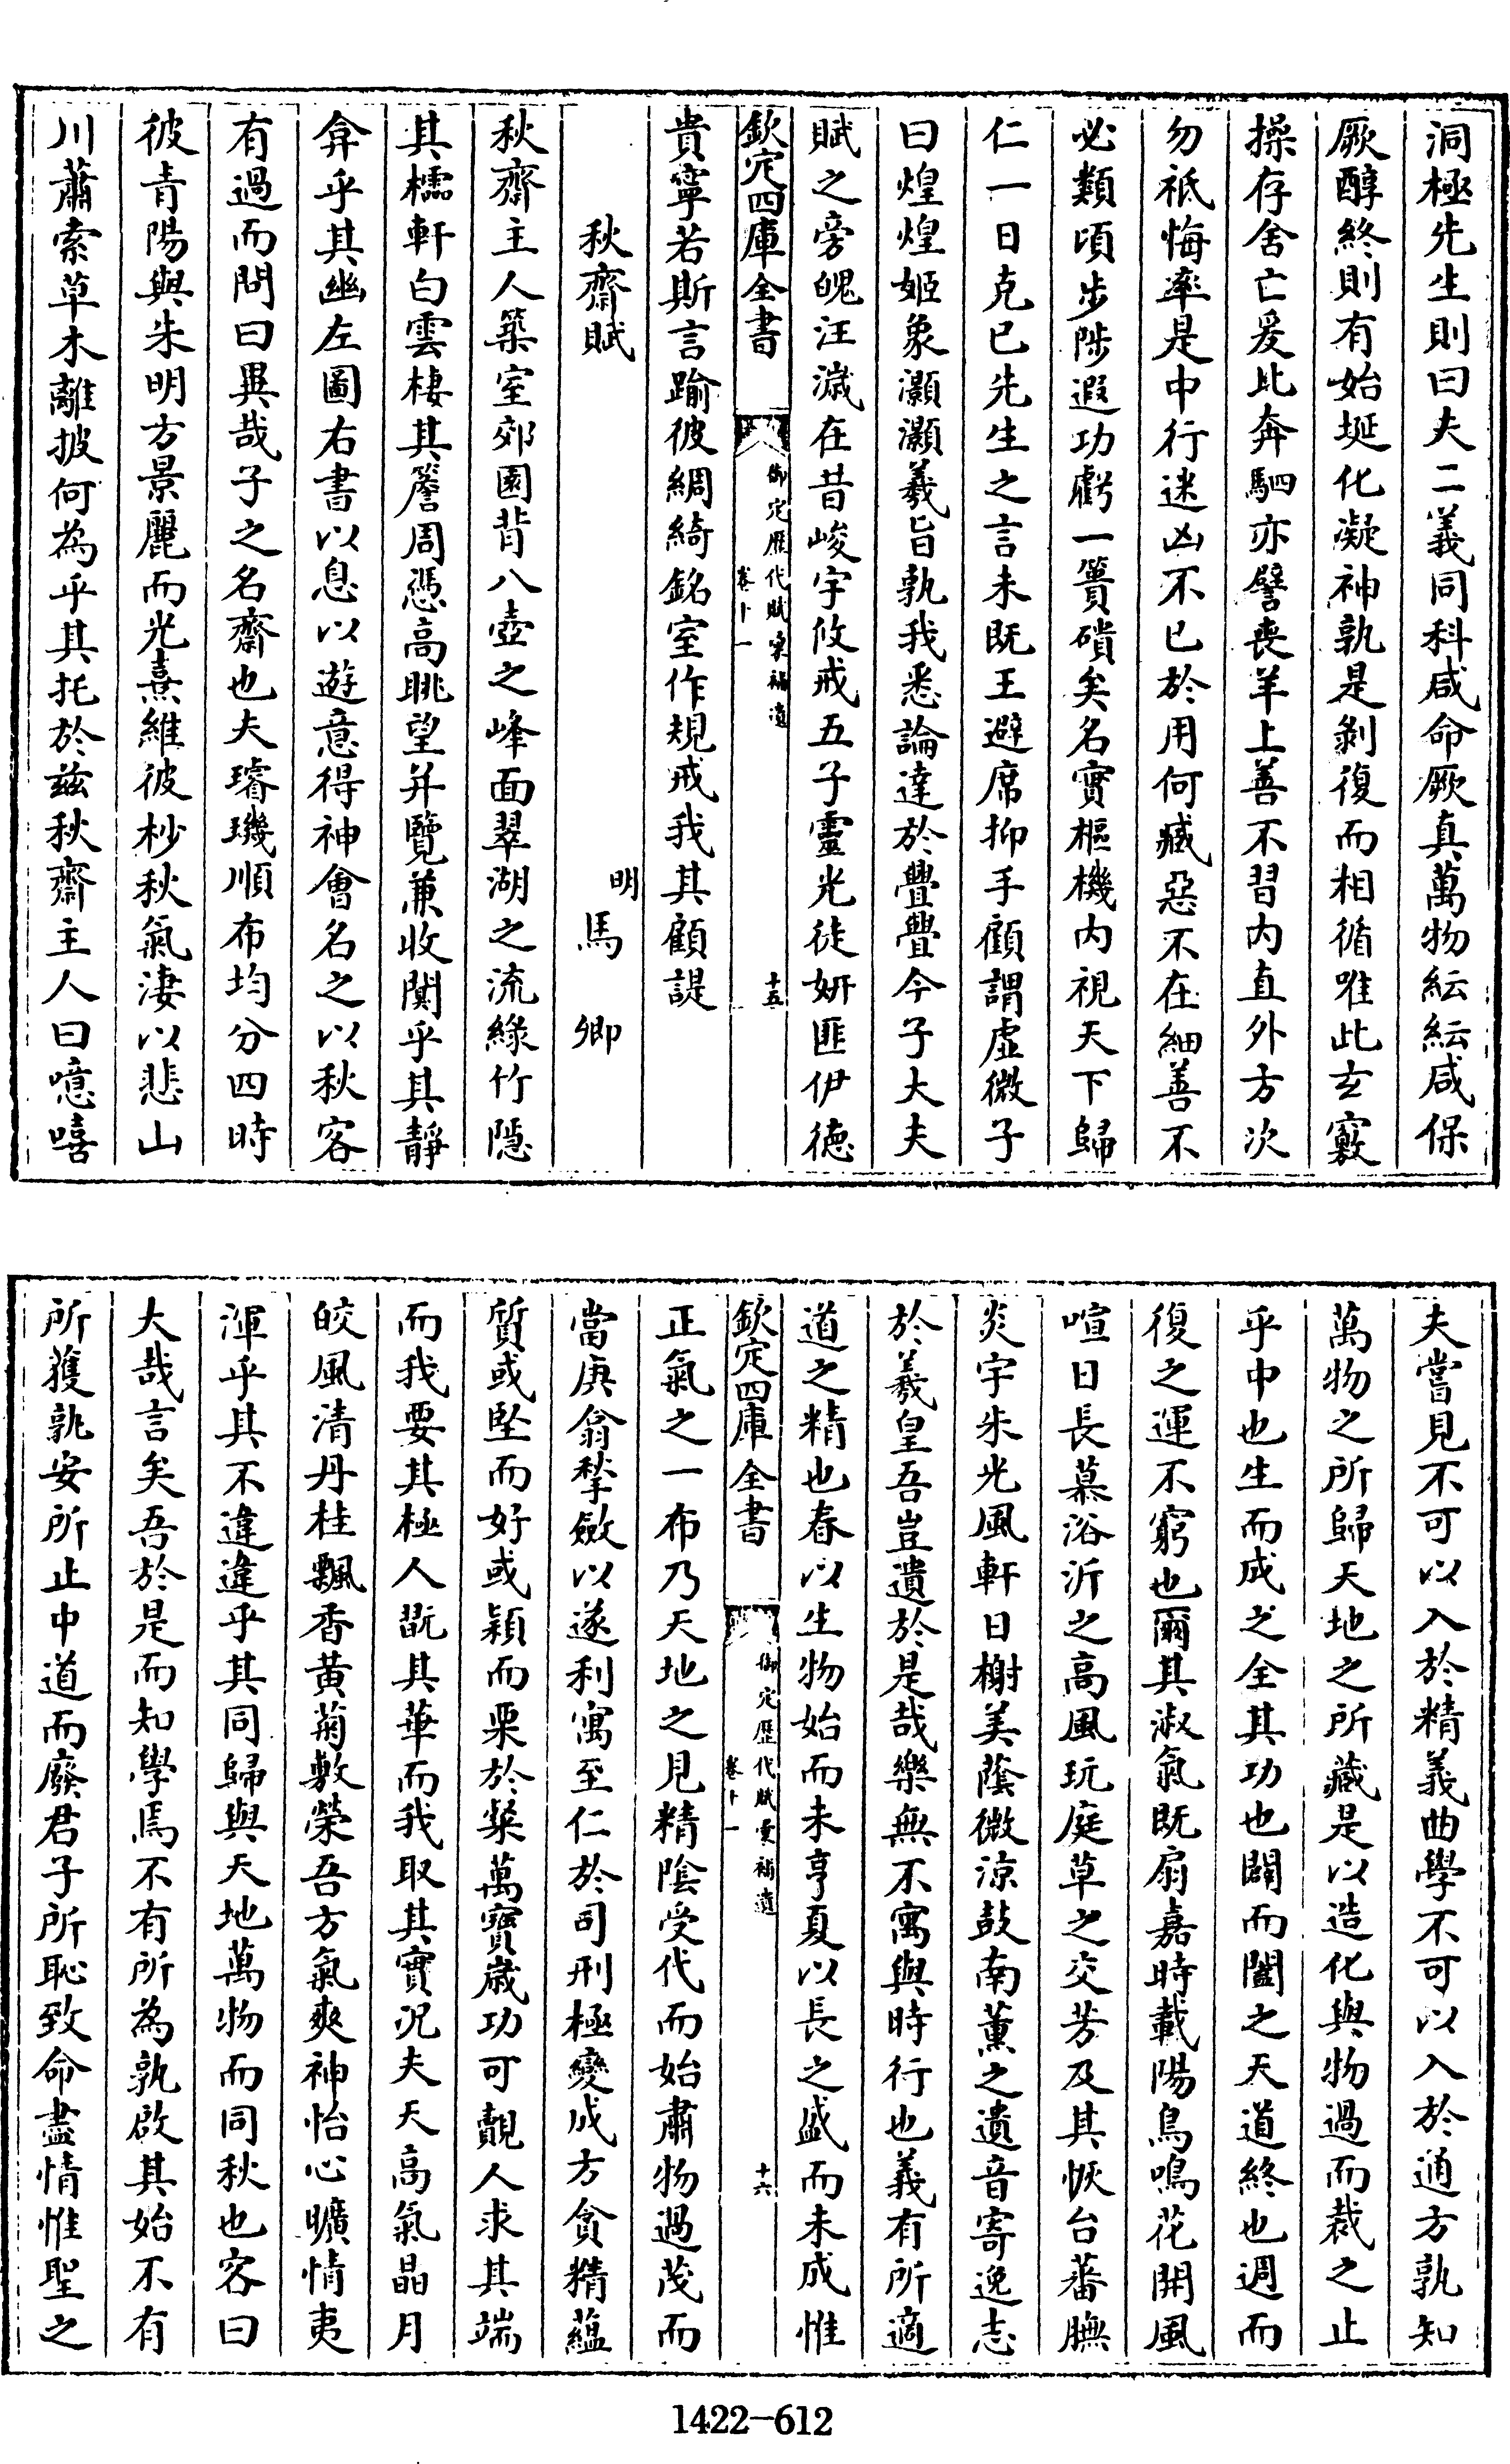 洞極先生則曰夫二義同科咸命厥真萬物紜紜咸保
厥醇終則有始埏化凝神孰是剝復而相循唯此玄竅
操存舍亡爰比奔駟亦譬喪羊上善不習内直外方次
勿祗悔率是中行迷凶不已於用何臧惡不在細善不
必類頃步陟遐功虧一簣磧矣名實樞機内視天下歸
仁一日克已先生之言未既王避席抑手顧謂虛微子
曰煌煌姬象灝灝羲旨孰我悉論達於亹亹今子大夫
賦之旁魄汪濊在昔峻宇攸戒五子靈光徒妍匪伊德
欽定四庫全書
御定歴代賦彙補遺
卷十一
十五
貴寧若斯言踰彼綢綺銘室作規戒我其顧諟
秋齋賦
明
馬卿
秋齋主人築室郊園背八壺之峰面翠湖之流緑竹隱
其檽軒白雲棲其簷周憑高眺望并覽兼收闃乎其靜
弇乎其幽左圖右書以息以遊意得神會名之以秋客
有過而問曰異哉子之名齋也夫璿璣順布均分四時
彼青陽與朱明方景麗而光熹維彼杪秋氣淒以悲山
川蕭索草木離披何為乎其托於兹秋齋主人曰噫嘻
夫嘗見不可以入於精義曲學不可以入於通方孰知
萬物之所歸天地之所藏是以造化與物過而裁之止
乎中也生而成之全其功也闢而闔之天道終也週而
復之運不窮也爾其淑氣既扇嘉時載陽鳥鳴花開風
喧日長慕浴沂之高風玩庭草之交芳及其恢台蕃膴
炎宇朱光風軒日榭美蔭微涼鼓南薰之遺音寄逸志
於羲皇吾豈遺於是哉樂無不寓與時行也義有所適
道之精也春以生物始而未亨夏以長之盛而未成惟
欽定四庫全書
御定歴代賦彙補遺
卷十一
十六
正氣之一布乃天地之見精陰受代而始肅物過茂而
當庚翁揫斂以遂利寓至仁於司刑極變成方貪精藴
質或堅而好或穎而栗於粲萬寶歳功可覿人求其端
而我要其極人翫其華而我取其實况夫天高氣晶月
皎風清丹桂飄香黄菊敷榮吾方氣爽神怡心曠情夷
渾乎其不違違乎其同歸與天地萬物而同秋也客曰
大哉言矣吾於是而知學焉不有所為孰啟其始不有
所獲孰安所止中道而廢君子所恥致命盡情惟聖之
1422-612